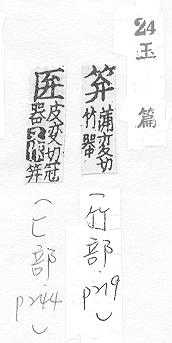 24 玉篇
笲 蒲変切竹器
(竹部.p219)
匥 皮変切冠器又作笲
(匚部.p244)